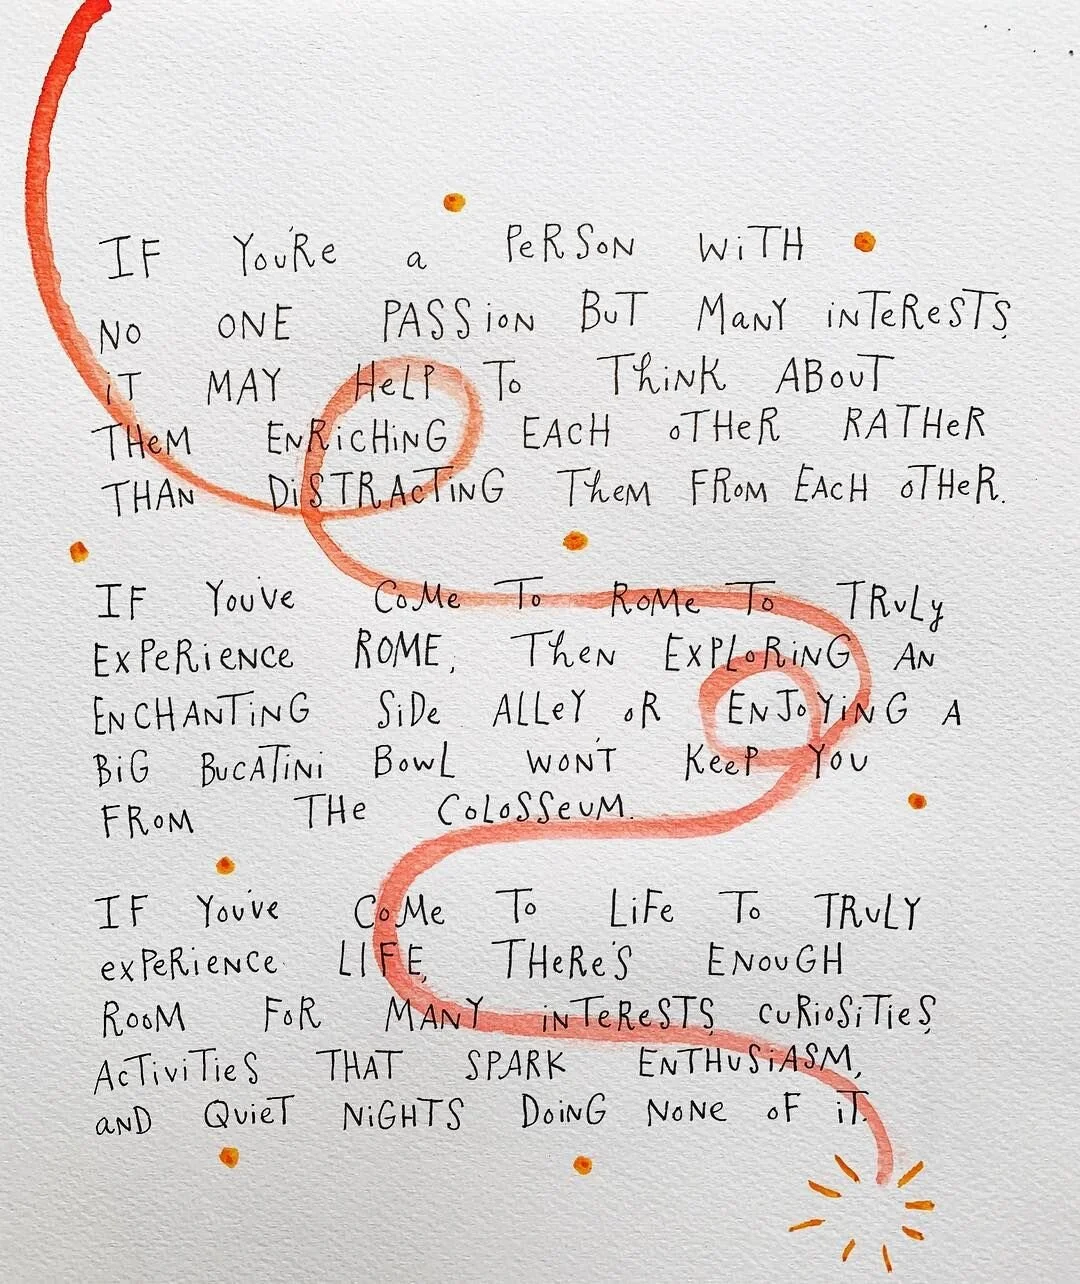 IF YOU'RE a PeRSoN WiTH
NO ONE PASSioN BuT MaNY iNTeReSTS,
iT MAY HeLP To THiNK ABouT
THeM ENRiCHiNG EACH oTHeR RATHeR
THAN DiSTRAcTiNG THeM FRoM EACH oTHeR.
IF YouVe CoMe To RoMe To TRuLy
ExPeRiENCe ROME, THeN EXPLoRiNG AN
ENCHANTiNG SiDe ALLeY oR ENJoYiNG A
BiG BuCATiNi BowL WON'T KeeP YOU
FRoM THe CoLoSSeuM.
IF You've CoMe To LiFe To TRuLY
exPeRieNCe LIFE, THeRe'S ENouGH
RooM FoR MANY iNTeReSTS, CuRioSiTieS,
AcTiViTieS THAT SPARK ENTHuSiASM,
aND QuieT NiGHTS DoiNG NoNe oF iT.